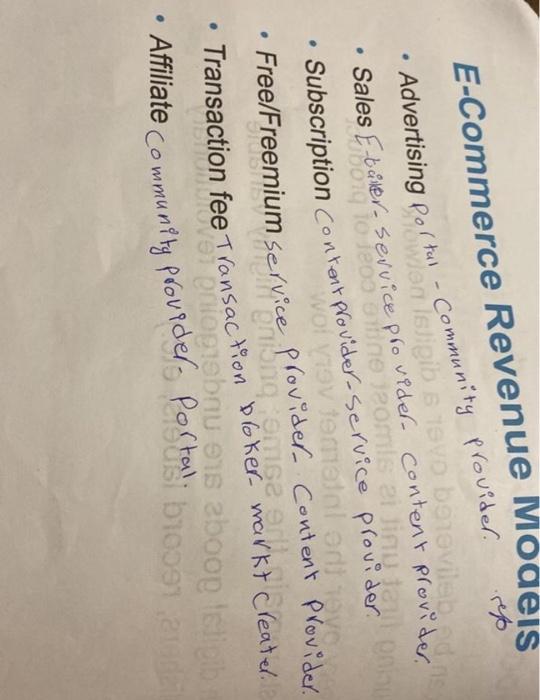 E-Commerce Revenue Models
• Advertising Portal - Community provider.
• Sales E-tailer - service provider - content provider.
• Subscription Content provider - service provider.
• Free/Freemium service provider - Content provider.
• Transaction fee Transaction broker - markt creater.
• Affiliate Community provider - portal.